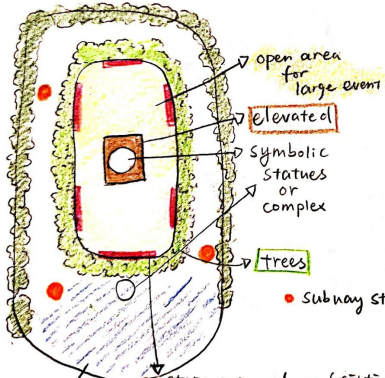 open area
for
large event
elevated
symbolic
statues
or
complex
trees
subway st